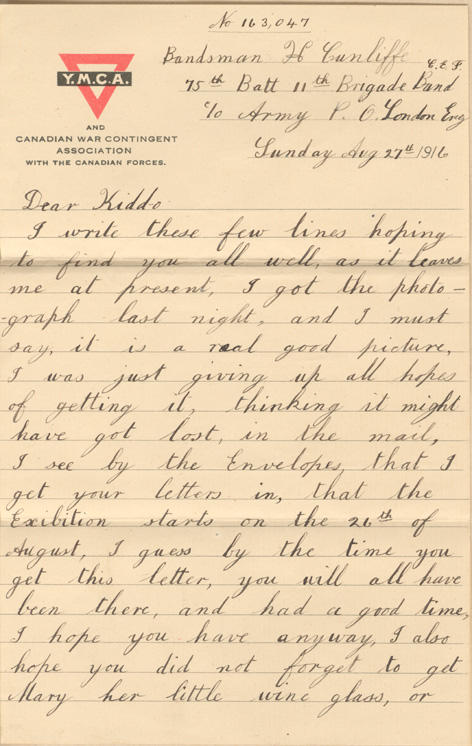 No 163,047
Bandsman H Cunliffe
C.E.F.
75th Batt 11th Brigade Band
c/o Army P. O. London Eng
Sunday Aug 27th 1916
Y.M.C.A.
AND
CANADIAN WAR CONTINGENT
ASSOCIATION
WITH THE CANADIAN FORCES.
Dear Kiddo
I write these few lines hoping
to find you all well, as it leaves
me at present, I got the photo-
-graph last night, and I must
say, it is a real good picture,
I was just giving up all hopes
of getting it, thinking it might
have got lost, in the mail,
I see by the Envelopes, that I
get your letters in, that the
Exibition starts on the 26th of
August, I guess by the time you
get this letter, you will all have
been there, and had a good time,
I hope you have anyway, I also
hope you did not forget to get
Mary her little wine glass, or